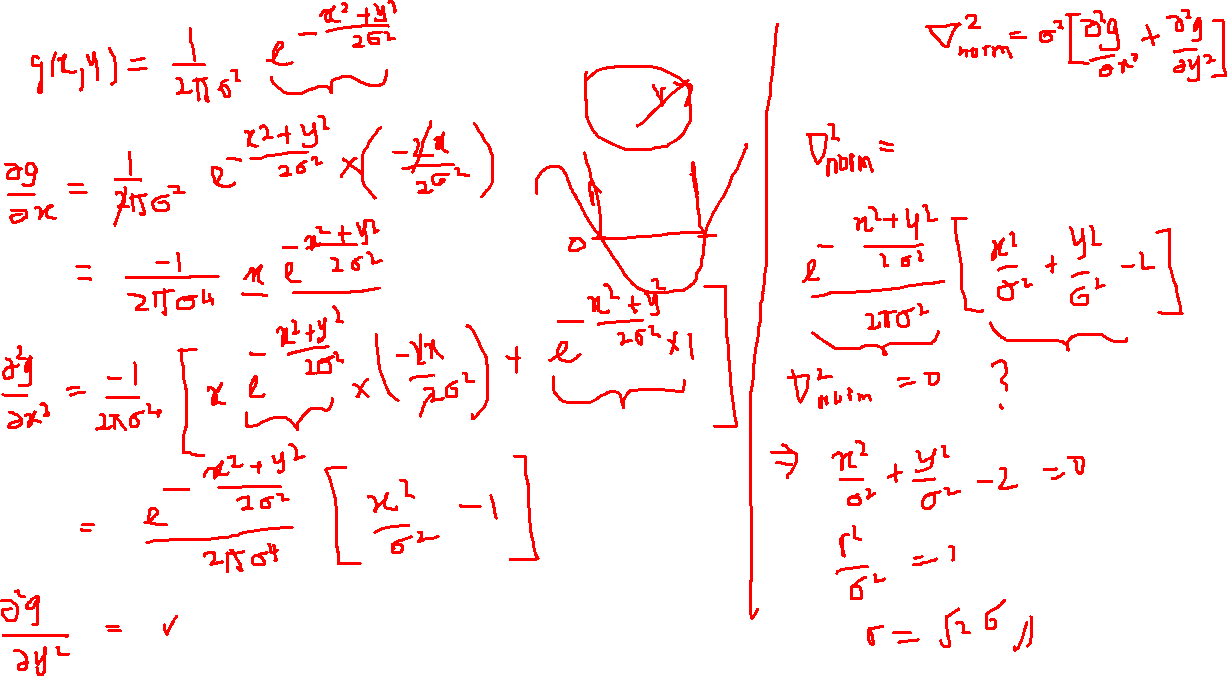 g(x,y) = 1/(2πσ²) e^(-(x²+y²)/(2σ²))
∂g/∂x = 1/(2πσ²) e^(-(x²+y²)/(2σ²)) × (-2x/(2σ²))
= -1/(2πσ⁴) x e^(-(x²+y²)/(2σ²))
∂²g/∂x² = -1/(2πσ⁴) [x e^(-(x²+y²)/(2σ²)) × (-2x/(2σ²)) + e^(-(x²+y²)/(2σ²)) × 1]
= e^(-(x²+y²)/(2σ²))/(2πσ⁴) [x²/σ² - 1]
∂²g/∂y² = ✓
r
0
∇²norm = σ² [∂²g/∂x² + ∂²g/∂y²]
∇²norm =
e^(-(x²+y²)/(2σ²))/(2πσ²) [x²/σ² + y²/σ² - 2]
∇²norm = 0 ?
⇒ x²/σ² + y²/σ² - 2 = 0
r²/σ² = 2
r = √2 σ //